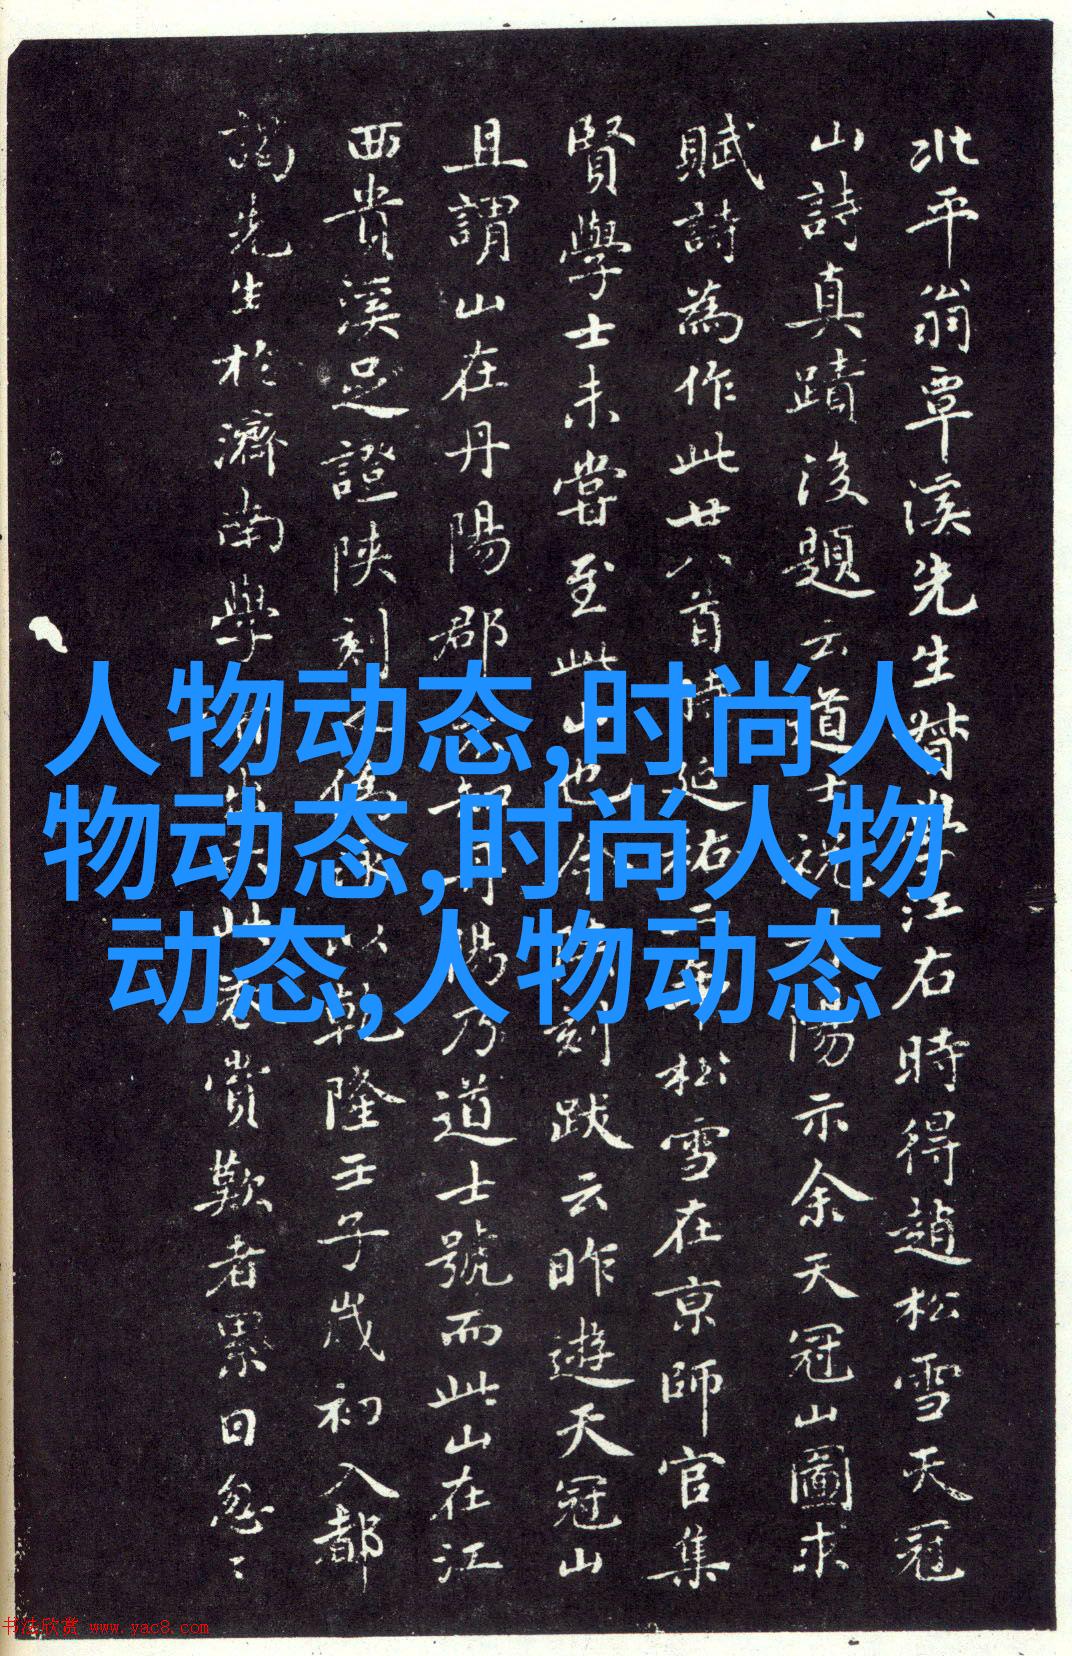 北平翁覃溪先生督學江右時得趙松雪天冠
山詩真蹟後題云道士祝丹陽示余天冠山圖求
賦詩為作此廿八首時延祐二年松雪在京師官集
賢學士未嘗至此山也今陝刻跋云昨遊天冠山
且謂山在丹陽郡丹陽乃道士號而此山在江
西貴溪足證陝刻偽以乾隆壬子歲初入都
謁先生於濟南學此卷賞歎者累日怱〻
人物动态,时尚人
物动态,时尚人物
动态,人物动态
书法欣赏 www.yac8.com